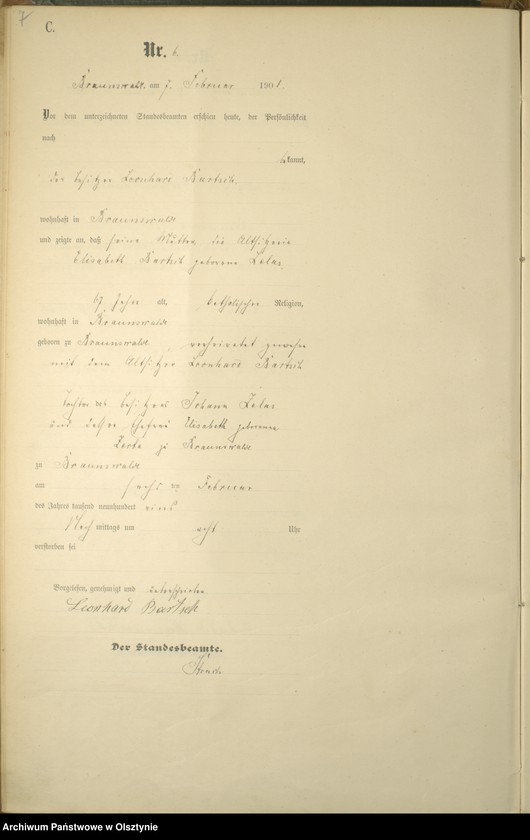 7
C.
Nr. 6
Braunswalde am 7. Februar 1901.
Vor dem unterzeichneten Standesbeamten erschien heute, der Persönlichkeit
nach
bekannt,
der Besitzer Leonhard Bartsch
wohnhaft in Braunswalde
und zeigte an, daß seine Mutter die Altsitzerin
Elisabeth Bartsch geborene
67 Jahre alt, katholischer Religion,
wohnhaft in Braunswalde
geboren zu Braunswalde, verheiratet gewesen
mit dem Altsitzer Leonhard Bartsch
Tochter des Besitzers Johann
und dessen Ehefrau Elisabeth geborene
zu Braunswalde
zu Braunswalde
am sechsten Februar
des Jahres tausend neunhundert eins
Nach mittags um acht Uhr
verstorben sei
Vorgelesen, genehmigt und unterschrieben
Leonhard Bartsch
Der Standesbeamte.
Archiwum Państwowe w Olsztynie